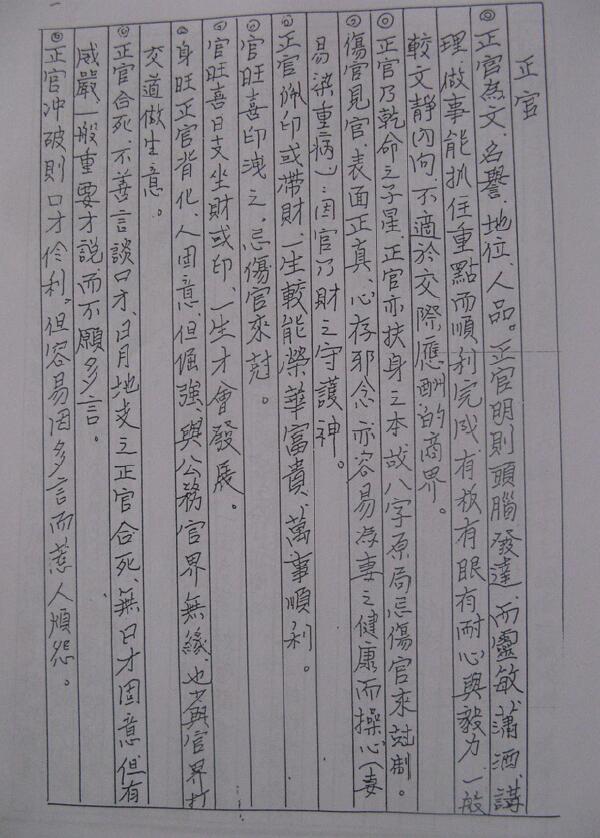 正官
◎正官為文、名譽、地位、人品。正官明則頭腦發達、而靈敏、瀟洒、講
理、做事能抓住重點而順利完成、有板有眼有耐心與毅力、一般
較文靜內向、不適於交際、應酬的商界。
◎正官乃乾命之子星、正官亦扶身之本、故八字原局忌傷官來尅制。
◎傷官見官、表面正真、心存邪念、亦容易為妻之健康而操心(妻
易染重病):因官乃財之守護神。
◎正官佩印或滯財、一生較能榮華富貴、萬事順利。
官旺喜印洩之。忌傷官來尅。
◎官旺喜日支坐財或印、一生才會發展。
身旺正官背化、人固意、但倔強、與公務官界無緣、也少與官界打
交道做生意。
◎正官合死、不善言談口才、日月地支之正官合死、無口才固意、但有
威嚴一般重要才說、而不願多言。
◎正官冲破則口才伶利。但容易因多言而惹人煩怨。